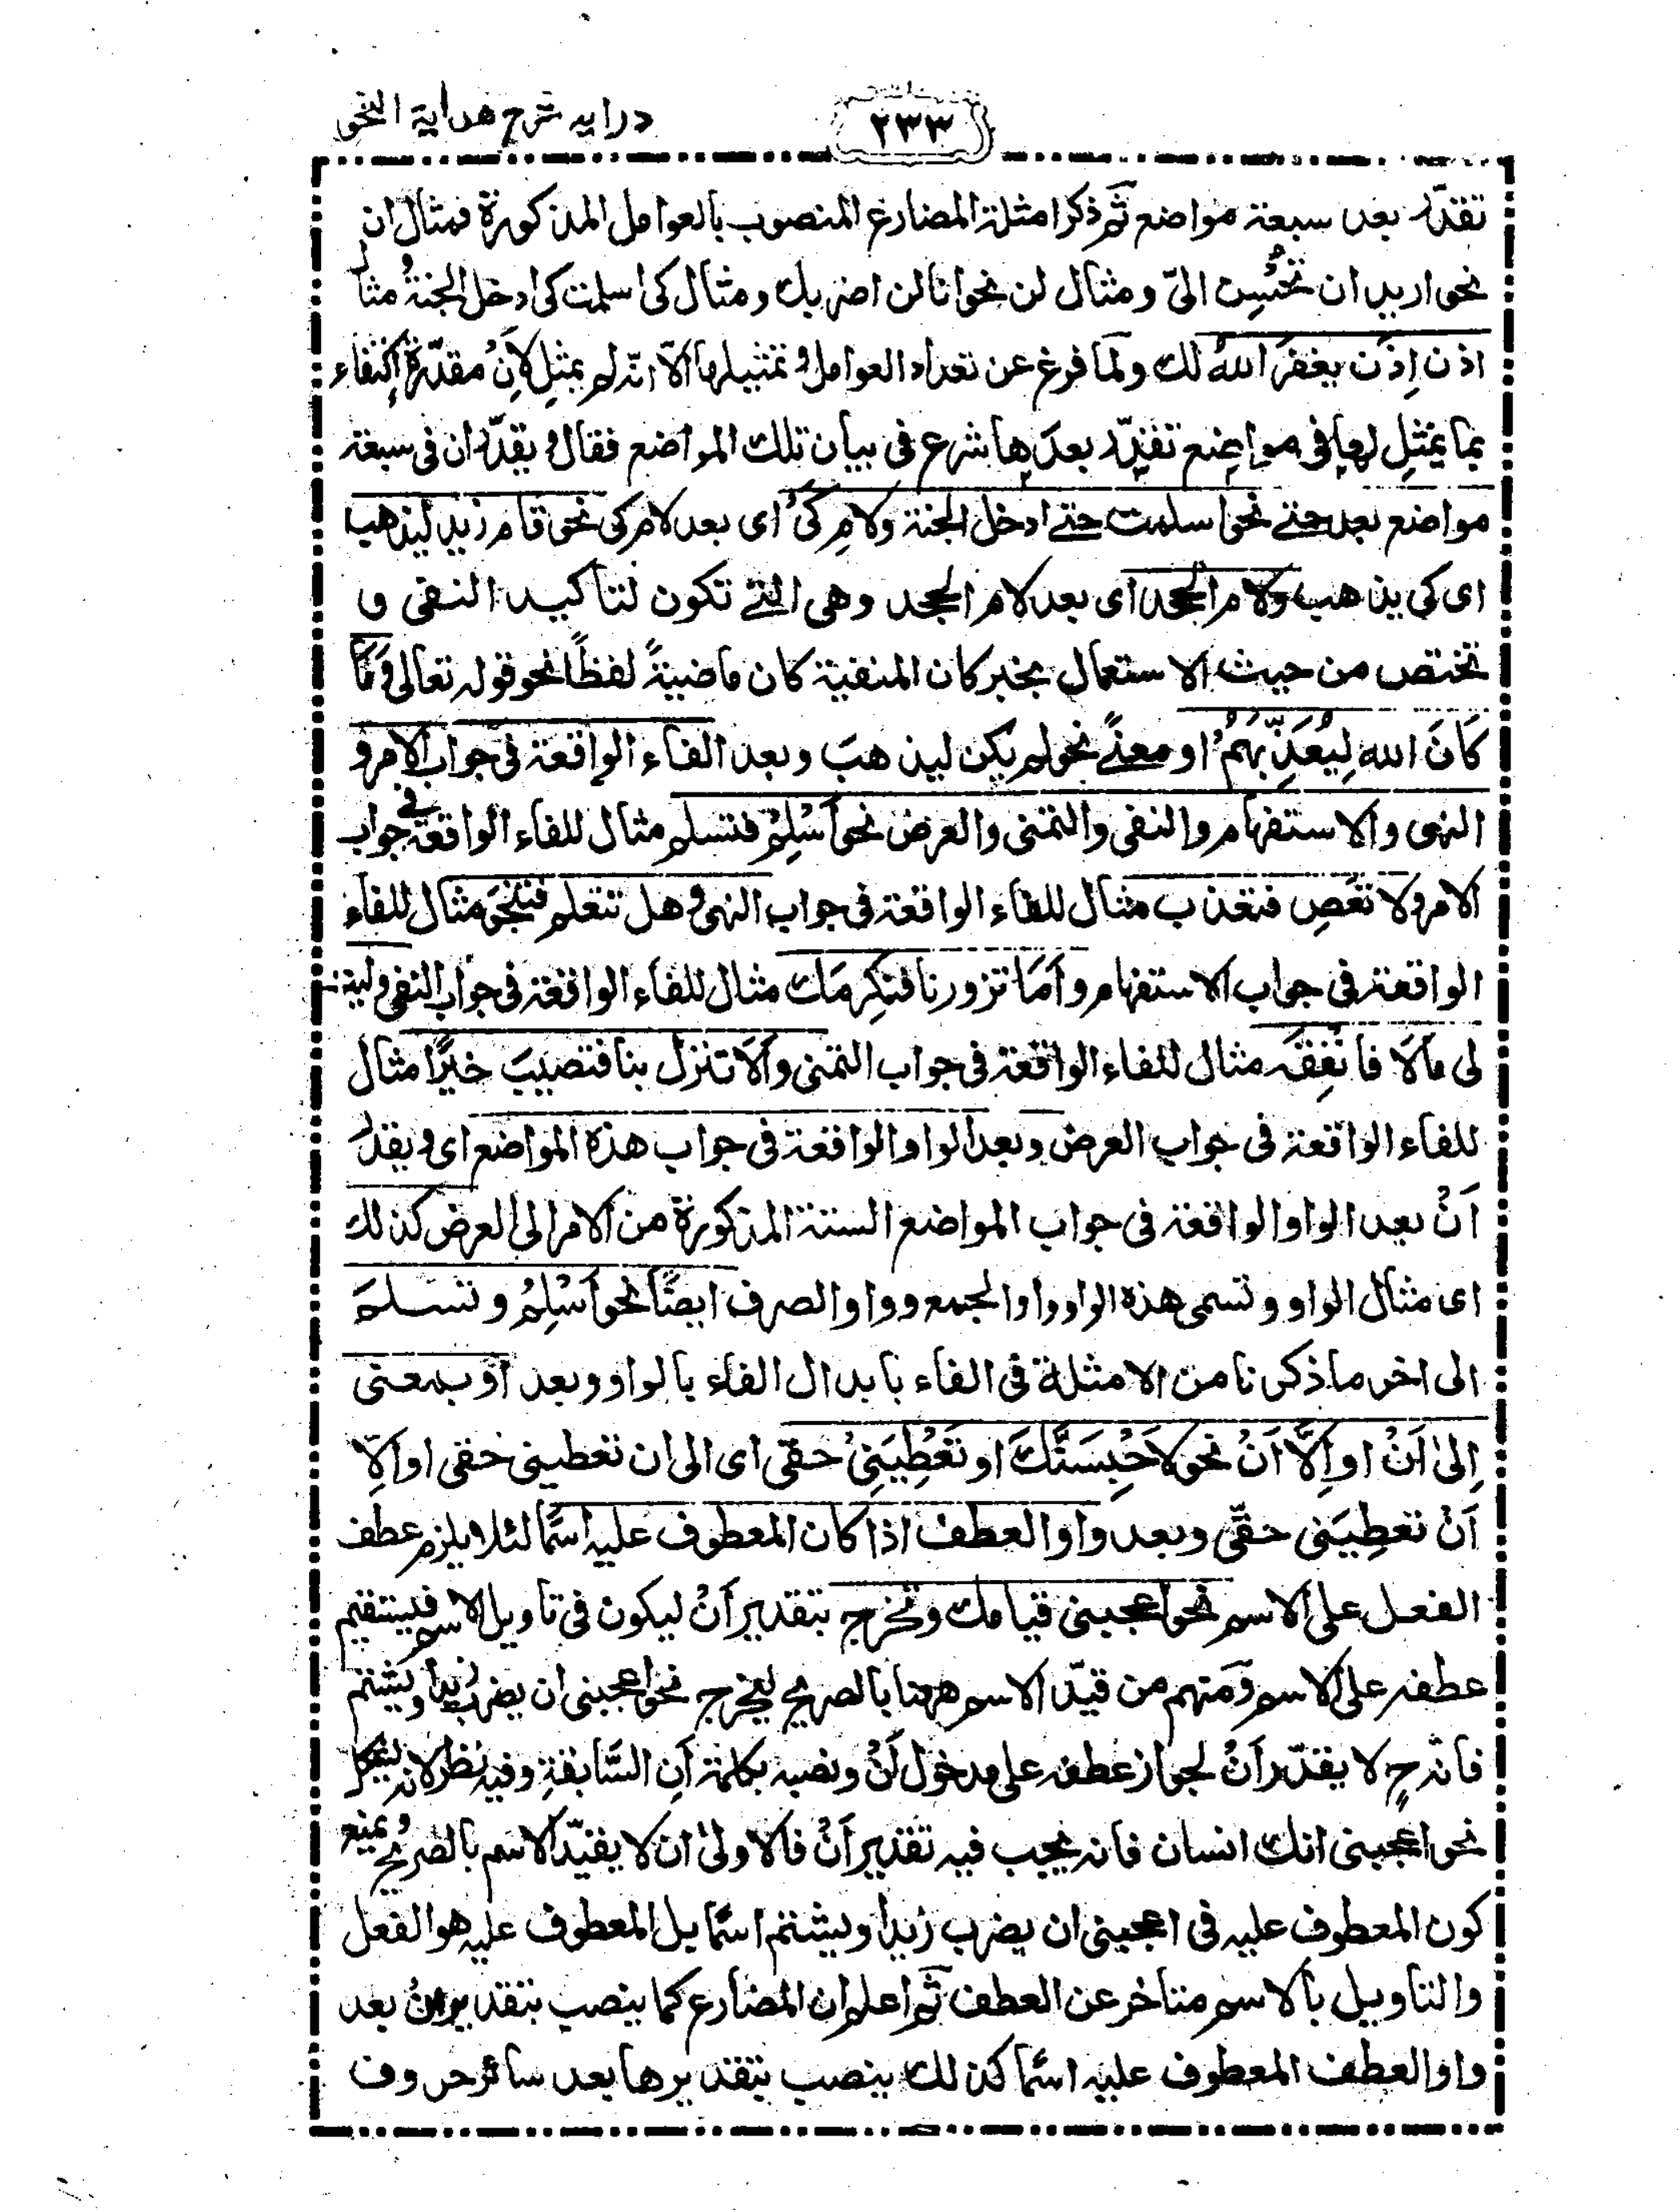 درايه شرح هداية النحو
٢٣٣
تقدّر بعد سبعة مواضع ثم ذكر امثلة المضارع المنصوب بالعوامل المذكورة فمثال ان
نحو اريد ان تُحْسِن الىّ ومثال لن نحو انا لن اضربك ومثال كى اسلمت كى ادخل الجنة ومثال
اذن اِذَن يغفرَ اللهُ لك ولما فرغ عن تعداد العوامل وتمثيلها الّا انه لم يمثل لِاَنْ مقدّرة اكتفاء
بما يمثل لها فى مواضع تقدّر بعدها شرع فى بيان تلك المواضع فقال ويقدّر ان فى سبعة
مواضع بعد حتے نحو اسلمت حتے ادخل الجنة ولام كَىْ اى بعد لام كى نحو قام زيد ليذهب
اى كى يذهب ولام الجحد اى بعد لام الجحد وهى التے تكون لتاكيد النفى و
تختص من حيث الاستعمال بخبر كان المنفية كان ماضيةً لفظًا نحو قوله تعالى وَمَا
كَانَ الله لِيُعَذِّبَهُمْ او معنًے نحو لم يكن ليذهبَ وبعد الفاء الواقعة فى جواب الامر و
النهى والاستفهام والنفى والتمنى والعرض نحو اَسْلِمْ فتسلم مثال للفاء الواقعة فى جواب
الامر ولا تَعْصِ فتعذب مثال للفاء الواقعة فى جواب النهى وهل تتعلم فتنجوَ مثال للفاء
الواقعة فى جواب الاستفهام واَمَا تزورنا فنكرمَك مثال للفاء الواقعة فى جواب النفى وليت
لى مالا فانفِقَه مثال للفاء الواقعة فى جواب التمنى واَلَا تنزل بنا فتصيبَ خيرًا مثال
للفاء الواقعة فى جواب العرض وبعد الواو الواقعة فى جواب هذه المواضع اى ويقدر
اَنْ بعد الواو الواقعة فى جواب المواضع الستة المذكورة من الامر الى العرض كذلك
اى مثال الواو وتسمى هذه الواو واو الجمع وواو الصرف ايضًا نحو اَسْلِمْ وتسلمَ
الى اخر ما ذكرنا من الامثلة فى الفاء بابدال الفاء بالواو وبعد اَوْ بمعنى
اِلىٰ اَنْ او اِلَّا اَنْ نحو لَاَحْبِسَنَّكَ او تُعْطِيَنِىْ حقّى اى الى ان تعطينى حقى او اِلّا
اَنْ تعطِيَنى حقّى وبعد واو العطف اذا كان المعطوف عليه اسمًا لئلا يلزم عطف
الفعل على الاسم نحو اعجبنى قيامك وتخرج بتقدير اَنْ ليكون فى تاويل الاسم فيستقيم
عطفه على الاسم ومنهم من قيّد الاسم ههنا بالصريح ليخرج نحو اعجبنى ان يضرب زيدا ويشتم
فانه ح لا يقدّر اَنْ لجواز عطفه على مدخول اَنْ ونصبه بكلمة اَنِ السَّابقةِ وفيه نظر لانه
نحو اعجبنى انك انسان فانه يجب فيه تقدير اَنْ فالاولىٰ ان لا يقيّد الاسم بالصريح ويمنع
كون المعطوف عليه فى اعجبنى ان يضرب زيدا ويشتم اسمًا بل المعطوف عليه هو الفعل
والتاويل بالاسم متاخر عن العطف ثم اعلم ان المضارع كما ينصب بتقدير اَنْ بعد
واو العطف المعطوف عليه اسمًا كذلك ينصب بتقديرها بعد سائر حروف